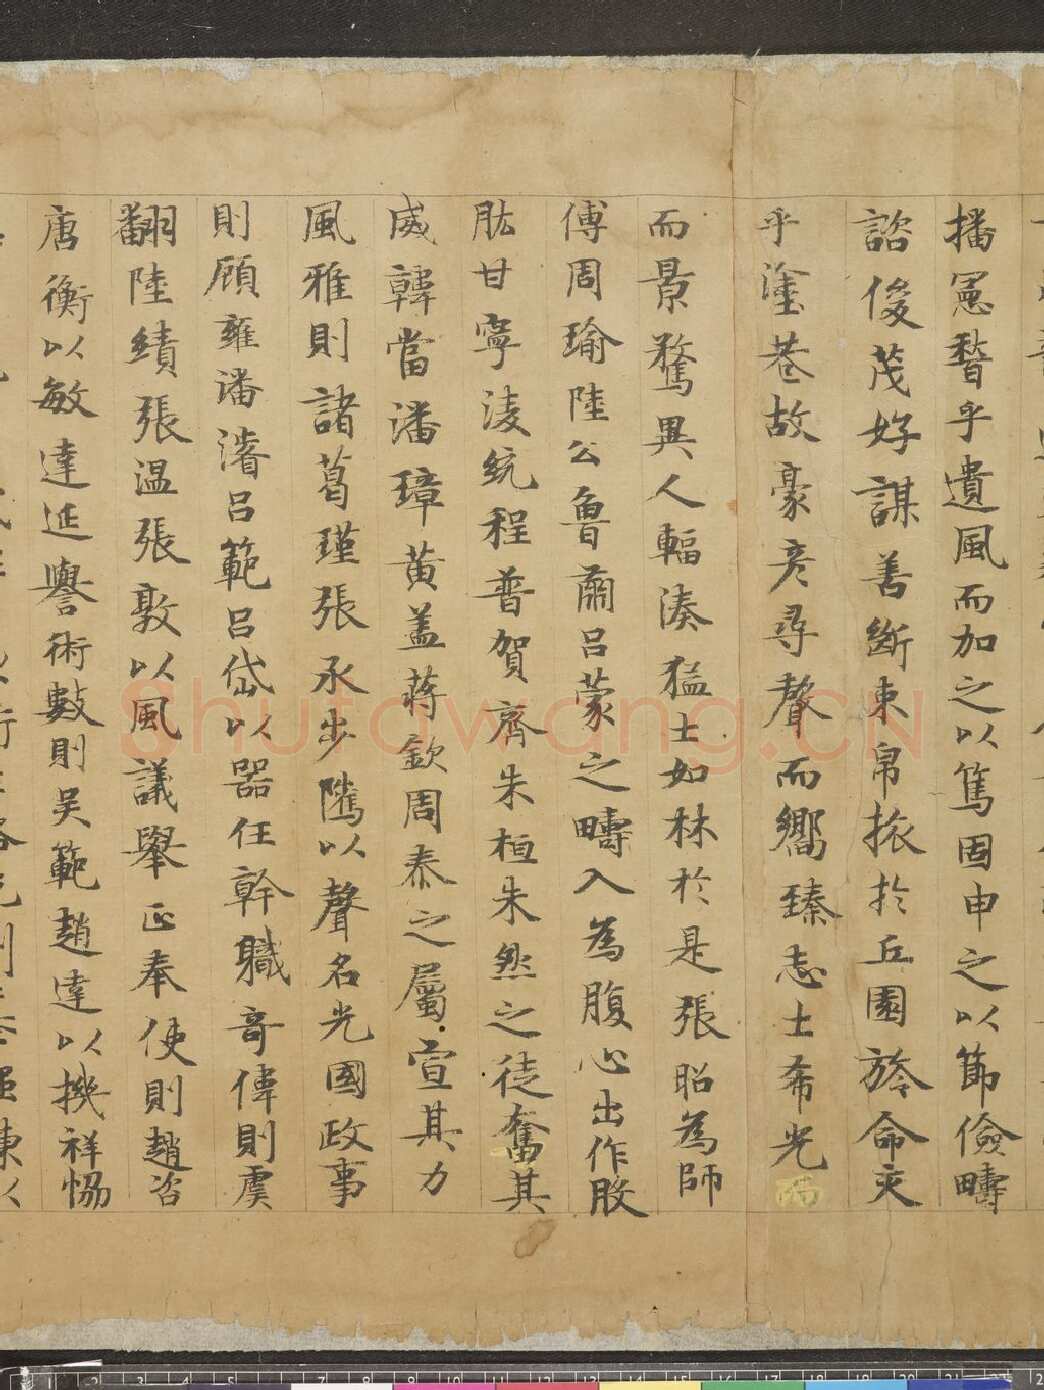 播憲稽乎遺風而加之以篤固申之以節儉疇
諮俊茂好謀善斷束帛旅於丘園旌命交
乎塗巷故豪彦尋聲而嚮臻志士希光
而景騖異人輻湊猛士如林於是張昭為師
傅周瑜陸公魯肅呂蒙之疇入為腹心出作股
肱甘寧淩統程普賀齊朱桓朱然之徒奮其
威韓當潘璋黄盖蒋欽周泰之屬宣其力
風雅則諸葛瑾張承步隲以聲名光國政事
則顧雍潘濬呂範呂岱以器任幹職奇偉則虞
翻陸績張温張敦以風議舉正奉使則趙咨
唐衡以敏達延譽術數則吴範趙達以機祥恊
Shufawang.CN